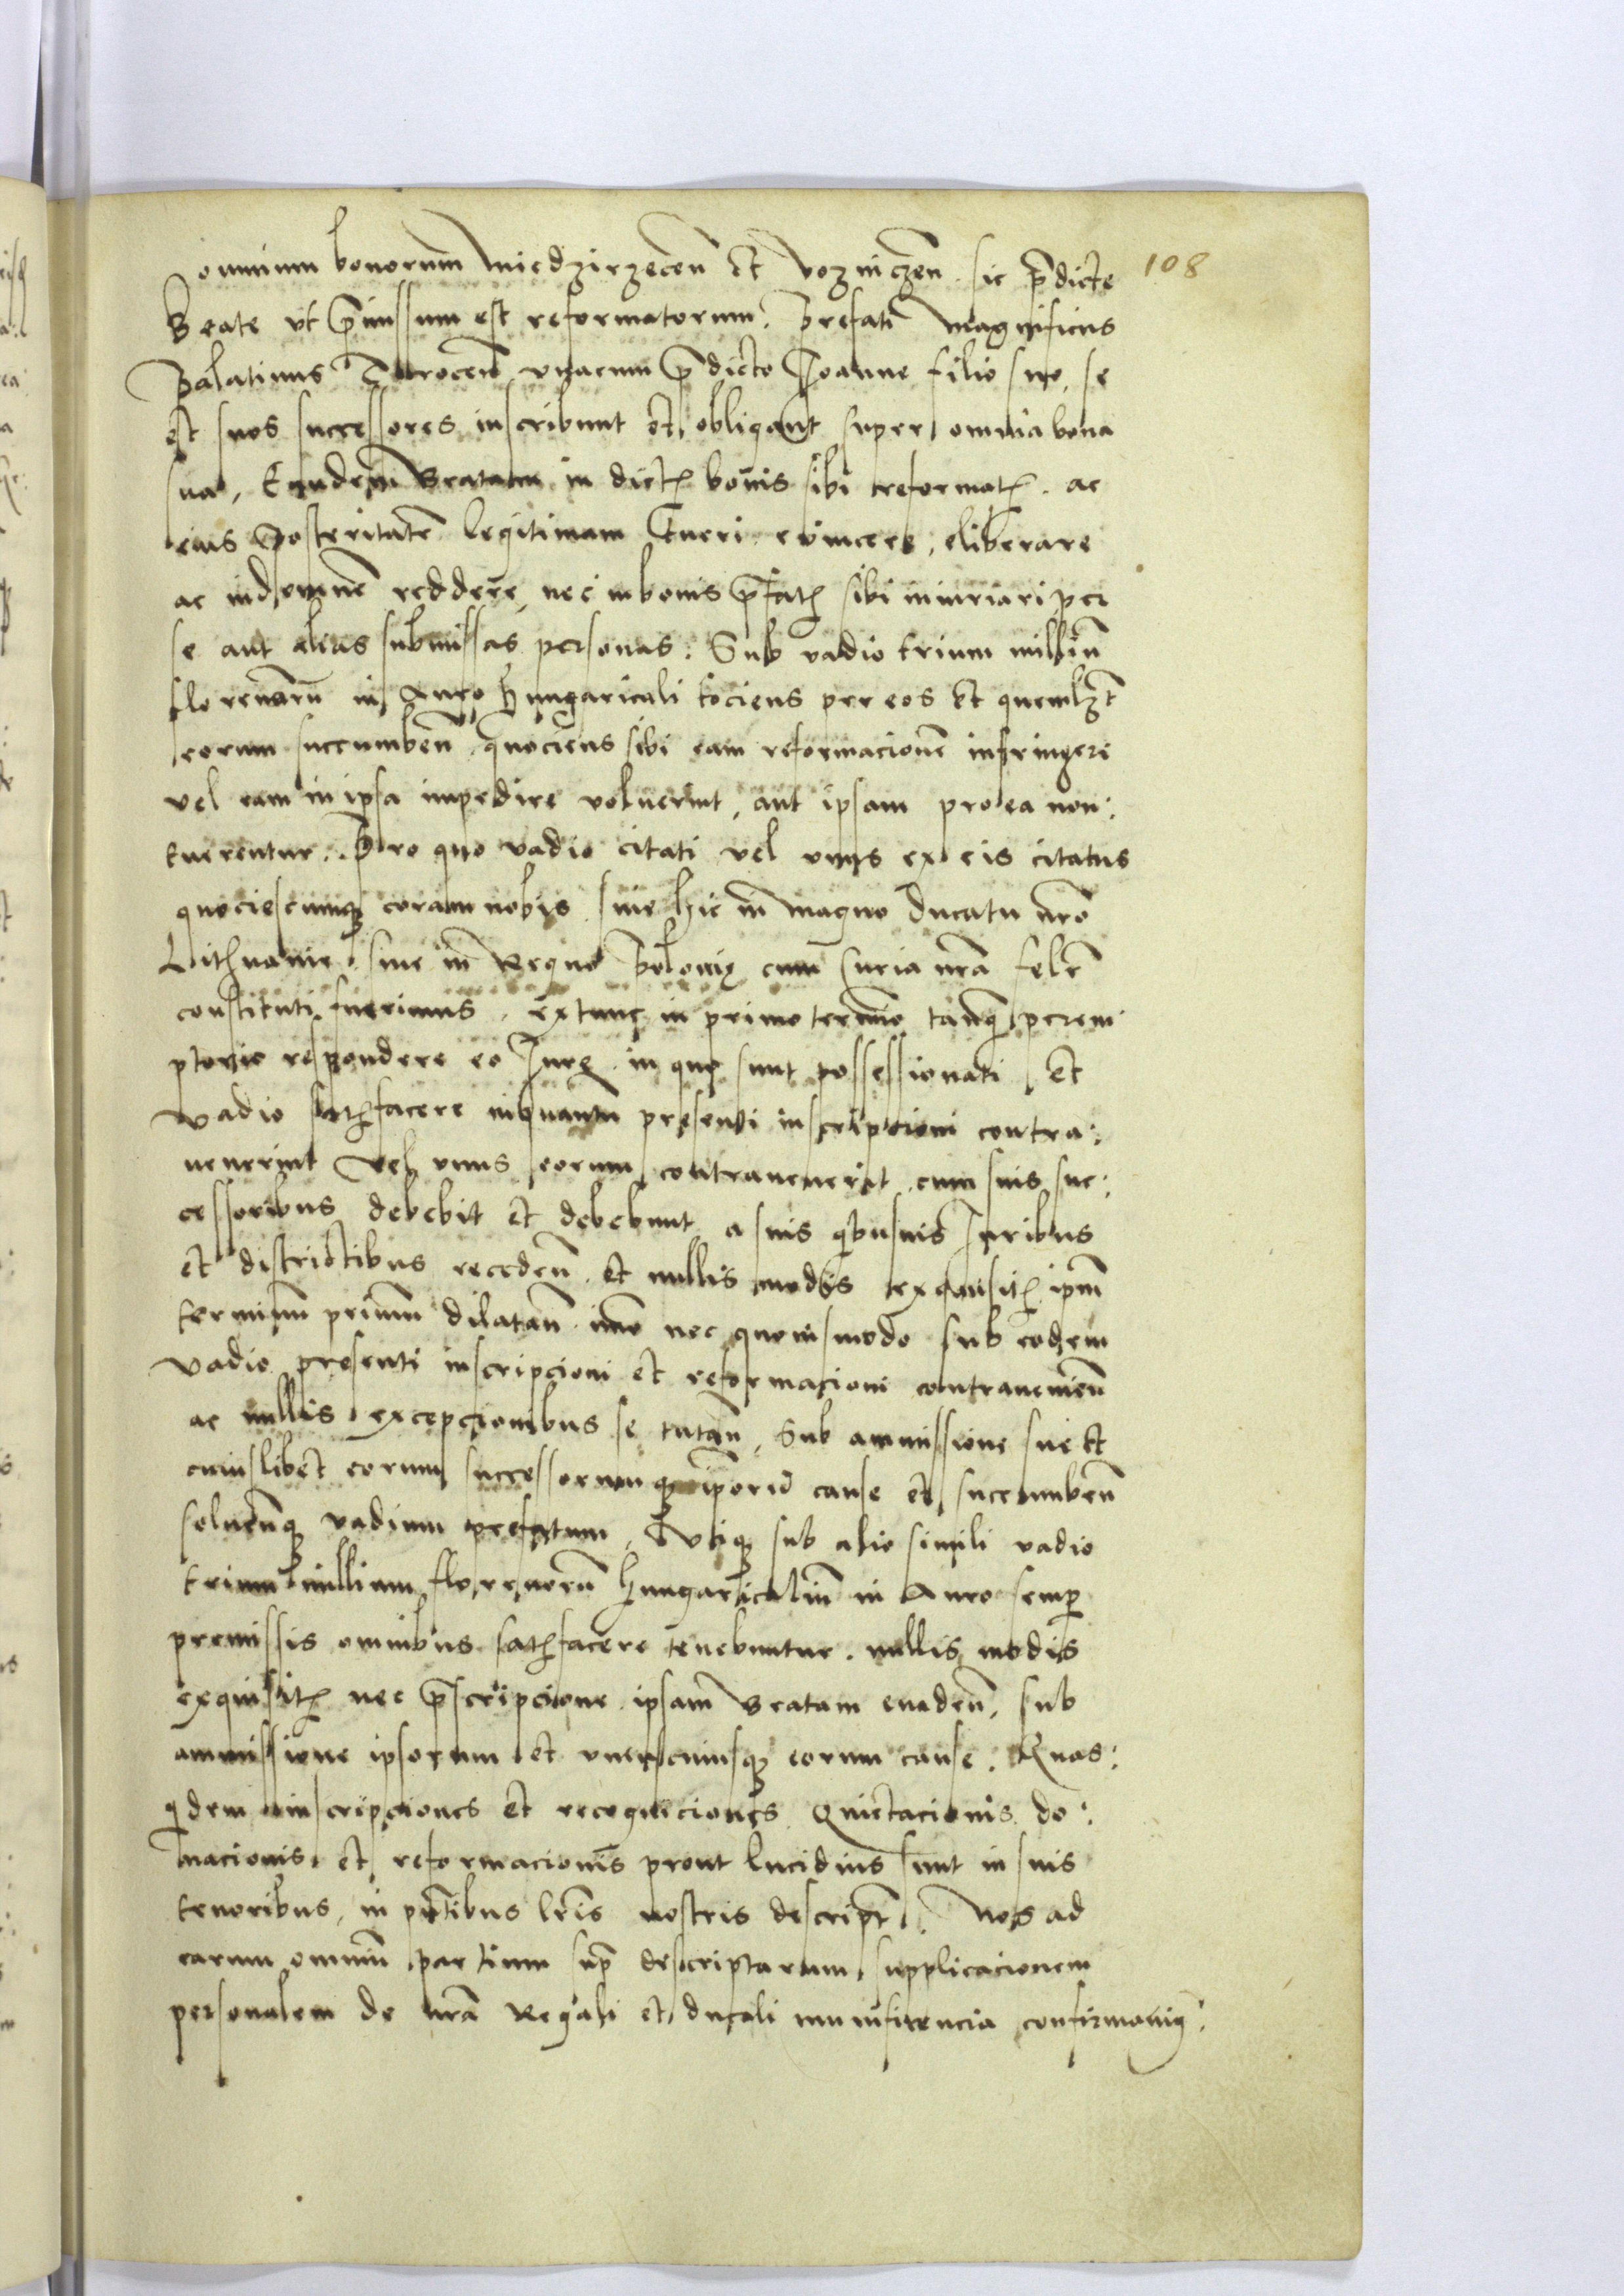 108
omnium bonorum Miedzirzeceñ et Vozniczeñ sic p̄dicte
Beate vt p̄missum est reformatorum. Prefati Magnificus
Palatinus Troceñ vnacum p̄dicto Joanne filio suo, se
et suos successores inscribunt et obligant super omnia bona
sua, Eandem Beatam in dictꝭ bonis sibi reformatꝭ. ac
eius posteritatē legitimam tueri evincere, eliberare
ac indemnē reddere, nec in bonis p̄fatꝭ sibi iniuriari per
se aut alias submissas personas: Sub vadio trium milliū
florenorū in Auro hungaricali tociens per eos et quemlꝫt
eorum succumbeñ. quociens sibi eam reformacionē infringere
vel eam in ipsa impedire voluerint, aut ipsam pro ea non:
tuerentur. Pro quo vadio citati vel vnus ex eis citatus
quociescumqꝫ coram nobis siue hic in Magno Ducatu nr̄o
Lithuanie siue in Regno Polonię cum Curia nr̄a felr̄
constituti fuerimus. extunc in primo termīo tanqꝫ perem
ptorio respondere eo Jure in quo sunt possessionati, Et
vadio satꝭfacere inquantū presenti inscripcioni contra:
uenerint vel vnus eorum contrauenerit cum suis suc:
cessoribus debebit et debebunt a suis qbusuis Juribus
et districtibus recedeñ. et nullis modis exquisitꝭ ipm̄
terminū primum dilatañ. imo nec quouismodo sub eodem
vadio presenti inscripcioni et reformacioni contraueñ
ac nullis excepcionibus se tutañ, Sub ammissione sue et
cuiuslibet eorum successorumqꝫ ip̄orū cause et succumbeñ
soluenqꝫ vadium prefatum, Vtiqꝫ sub alio simili vadio
trium millium florenorū hungaricaliū in Auro semp̄
premissis omnibus satꝭfacere tenebuntur. nullis modis
exquisitꝭ nec p̄scripcione ipsam Beatam euadeñ, sub
ammissione ipsorum et vniuscuiusqꝫ eorum cause. Quas:
qdem inscripciones et recogniciones Quietacionis do:
nacionis et reformacionis prout lucidius sunt in suis
tenoribus, in pn̄tibus lr̄is nostris descripti. Nos ad
earum omniū partium sup̄ descriptarum supplicacionem
personalem de nr̄a Regali et ducali munificencia confirmanꝯ: